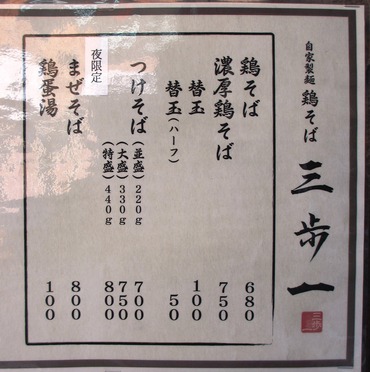 自家製麺 鶏そば
三歩一
三歩一
鶏そば 680
濃厚鶏そば 750
替玉 100
替玉(ハーフ) 50
つけそば(並盛)220g 700
(大盛)330g 750
(特盛)440g 800
夜限定
まぜそば 800
鶏蛋湯 100